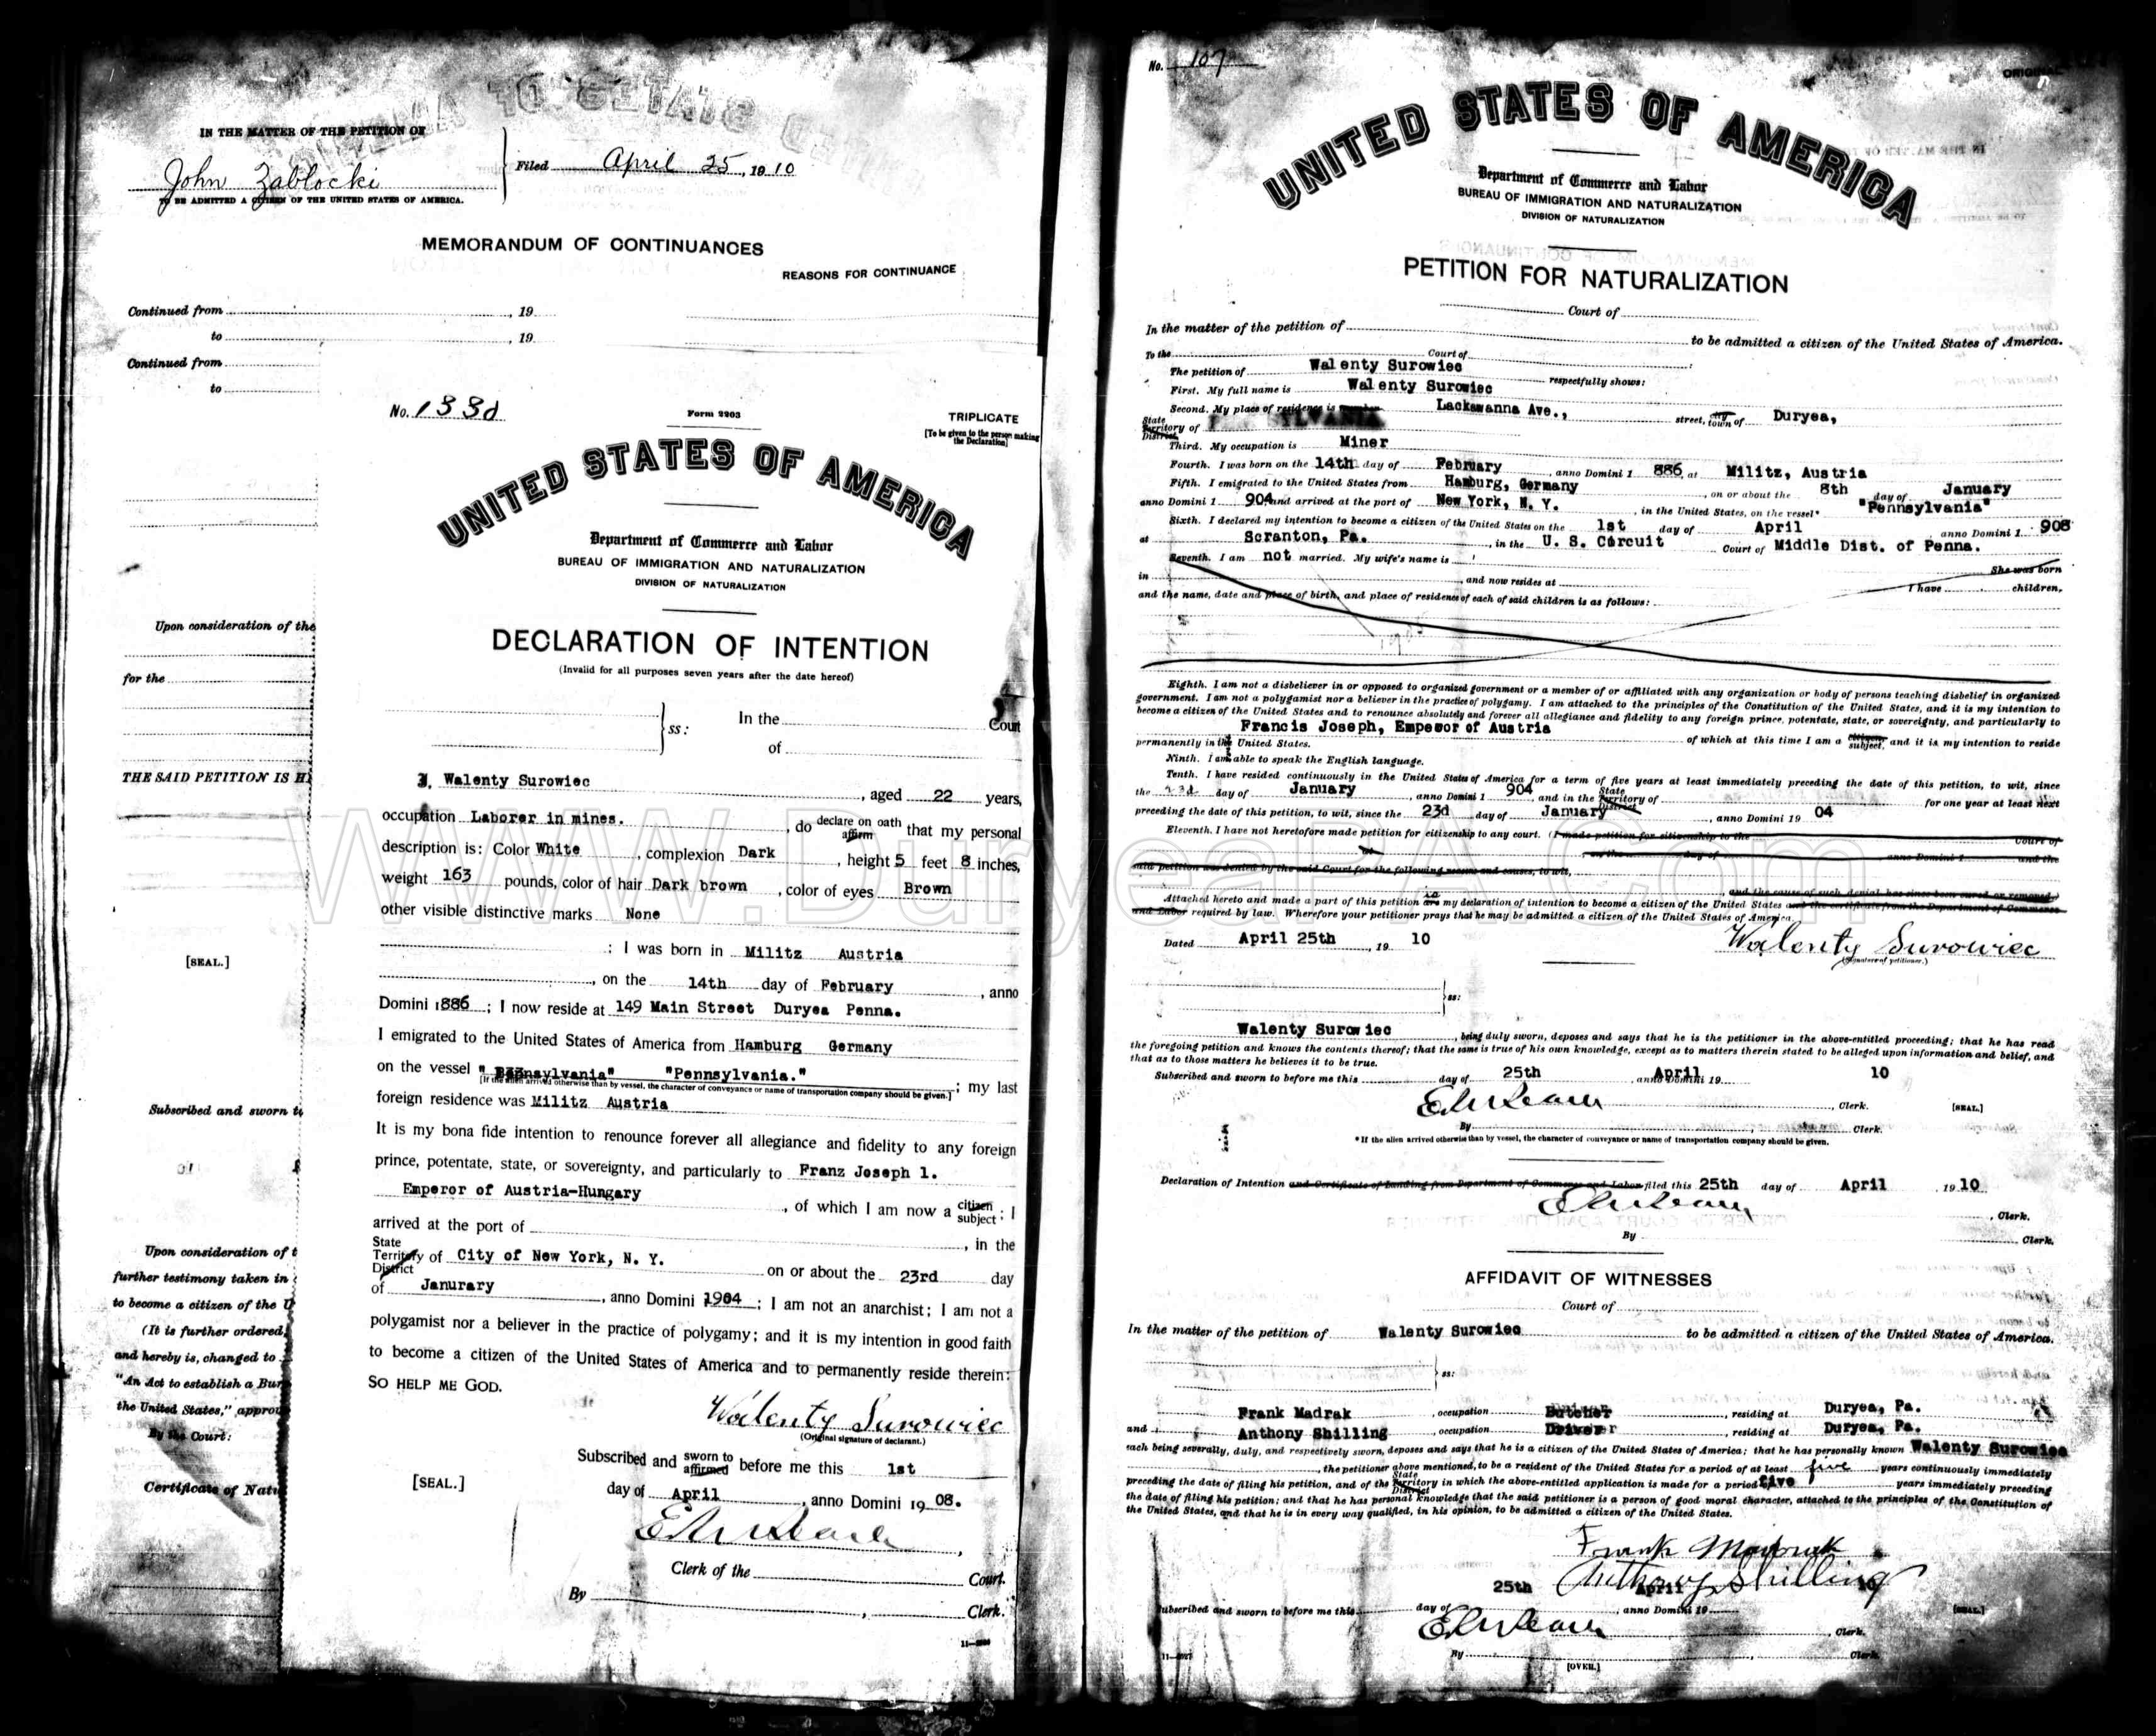 IN THE MATTER OF THE PETITION OF
John Zablocki
TO BE ADMITTED A CITIZEN OF THE UNITED STATES OF AMERICA.
Filed April 25, 1910
MEMORANDUM OF CONTINUANCES
REASONS FOR CONTINUANCE
Continued from , 19
to , 19
Continued from
to
Upon consideration of the
for the
THE SAID PETITION IS H
[SEAL.]
Subscribed and sworn t
Upon consideration of t
further testimony taken in
to become a citizen of the U
(It is further ordered,
and hereby is, changed to
"An Act to establish a Bur
the United States," approv
By the Court:
Certificate of Natu
No. 1330
Form 2203
TRIPLICATE
[To be given to the person making the Declaration]
UNITED STATES OF AMERICA
Department of Commerce and Labor
BUREAU OF IMMIGRATION AND NATURALIZATION
DIVISION OF NATURALIZATION
DECLARATION OF INTENTION
(Invalid for all purposes seven years after the date hereof)
ss: In the Court
of
I, Walenty Surowiec, aged 22 years,
occupation Laborer in mines., do declare on oath affirm that my personal
description is: Color White, complexion Dark, height 5 feet 8 inches,
weight 163 pounds, color of hair Dark brown, color of eyes Brown
other visible distinctive marks None
; I was born in Militz Austria
, on the 14th day of February, anno
Domini 1886; I now reside at 149 Main Street Duryea Penna.
I emigrated to the United States of America from Hamburg Germany
on the vessel "Pennsylvania" "Pennsylvania."; my last
[If the alien arrived otherwise than by vessel, the character of conveyance or name of transportation company should be given.]
foreign residence was Militz Austria
It is my bona fide intention to renounce forever all allegiance and fidelity to any foreign
prince, potentate, state, or sovereignty, and particularly to Franz Joseph 1.
Emperor of Austria-Hungary, of which I am now a citizen subject; I
arrived at the port of , in the
State Territory District of City of New York, N. Y. on or about the 23rd day
of Janurary, anno Domini 1904; I am not an anarchist; I am not a
polygamist nor a believer in the practice of polygamy; and it is my intention in good faith
to become a citizen of the United States of America and to permanently reside therein:
SO HELP ME GOD.
Walenty Surowiec
(Original signature of declarant.)
Subscribed and sworn to affirmed before me this 1st
[SEAL.]
day of April, anno Domini 1908.
Clerk of the Court.
By , Clerk.
No. 107
ORIGINAL
UNITED STATES OF AMERICA
Department of Commerce and Labor
BUREAU OF IMMIGRATION AND NATURALIZATION
DIVISION OF NATURALIZATION
PETITION FOR NATURALIZATION
Court of
In the matter of the petition of to be admitted a citizen of the United States of America.
To the Court of :
The petition of Walenty Surowiec respectfully shows:
First. My full name is Walenty Surowiec
Second. My place of residence is number Lackawanna Ave., street, city town of Duryea,
State Territory District of
Third. My occupation is Miner
Fourth. I was born on the 14th day of February, anno Domini 1 886, at Militz, Austria
Fifth. I emigrated to the United States from Hamburg, Germany, on or about the 8th day of January
anno Domini 1 904 and arrived at the port of New York, N. Y., in the United States, on the vessel* "Pennsylvania"
Sixth. I declared my intention to become a citizen of the United States on the 1st day of April anno Domini 1 908
at Scranton, Pa., in the U. S. Circuit Court of Middle Dist. of Penna.
Seventh. I am not married. My wife's name is She was born
in , and now resides at I have children,
and the name, date and place of birth, and place of residence of each of said children is as follows:
Eighth. I am not a disbeliever in or opposed to organized government or a member of or affiliated with any organization or body of persons teaching disbelief in organized
government. I am not a polygamist nor a believer in the practice of polygamy. I am attached to the principles of the Constitution of the United States, and it is my intention to
become a citizen of the United States and to renounce absolutely and forever all allegiance and fidelity to any foreign prince, potentate, state, or sovereignty, and particularly to
Francis Joseph, Emperor of Austria of which at this time I am a citizen subject, and it is my intention to reside
permanently in the United States.
Ninth. I am able to speak the English language.
Tenth. I have resided continuously in the United States of America for a term of five years at least immediately preceding the date of this petition, to wit, since
the 23d day of January, anno Domini 1 904 and in the State Territory District of for one year at least next
preceding the date of this petition, to wit, since the 23d day of January, anno Domini 19 04
Eleventh. I have not heretofore made petition for citizenship to any court. (I made petition for citizenship to the Court of
at on the day of anno Domini 1 and the
said petition was denied by the said Court for the following reasons and causes, to wit,
, and the cause of such denial has since been cured or removed.)
Attached hereto and made a part of this petition are is my declaration of intention to become a citizen of the United States and the certificate from the Department of Commerce
and Labor required by law. Wherefore your petitioner prays that he may be admitted a citizen of the United States of America.
Dated April 25th, 19 10
Walenty Surowiec
(Signature of petitioner.)
ss:
Walenty Surowiec, being duly sworn, deposes and says that he is the petitioner in the above-entitled proceeding; that he has read
the foregoing petition and knows the contents thereof; that the same is true of his own knowledge, except as to matters therein stated to be alleged upon information and belief, and
that as to those matters he believes it to be true.
Subscribed and sworn to before me this 25th day of April, anno Domini 19 10
, Clerk. [SEAL.]
By , Clerk.
*If the alien arrived otherwise than by vessel, the character of conveyance or name of transportation company should be given.
Declaration of Intention and Certificate of Landing from Department of Commerce and Labor filed this 25th day of April 19 10
, Clerk.
By Clerk.
AFFIDAVIT OF WITNESSES
Court of
In the matter of the petition of Walenty Surowiec to be admitted a citizen of the United States of America.
ss:
Frank Madrak, occupation Butcher, residing at Duryea, Pa.
and Anthony Shilling, occupation Driver, residing at Duryea, Pa.
each being severally, duly, and respectively sworn, deposes and says that he is a citizen of the United States of America; that he has personally known Walenty Surowiec
, the petitioner above mentioned, to be a resident of the United States for a period of at least five years continuously immediately
preceding the date of filing his petition, and of the State Territory District in which the above-entitled application is made for a period of five years immediately preceding
the date of filing his petition; and that he has personal knowledge that the said petitioner is a person of good moral character, attached to the principles of the Constitution of
the United States, and that he is in every way qualified, in his opinion, to be admitted a citizen of the United States.
Frank Madrak
Anthony Shilling
Subscribed and sworn to before me this 25th day of April, anno Domini 19 10 [SEAL.]
, Clerk.
By , Clerk.
[OVER.]
WWW.DuryeaPA.Com